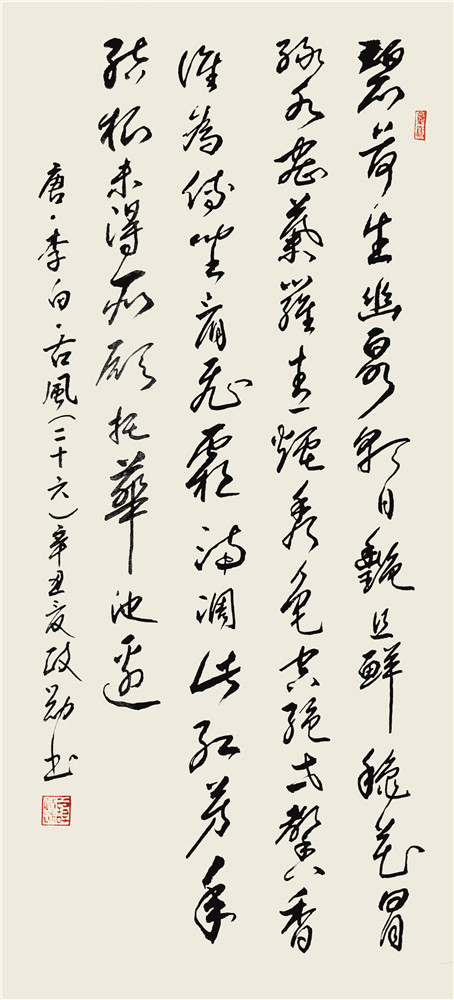 碧荷生幽泉朝日艷且鮮穐花冒
綠水密葉羅青煙秀色空絕世馨香
誰為傳坐看飛霜滿凋此紅芳年
結根未得所願托華池邊
唐·李白·古風(二十六)辛丑夏政勋书